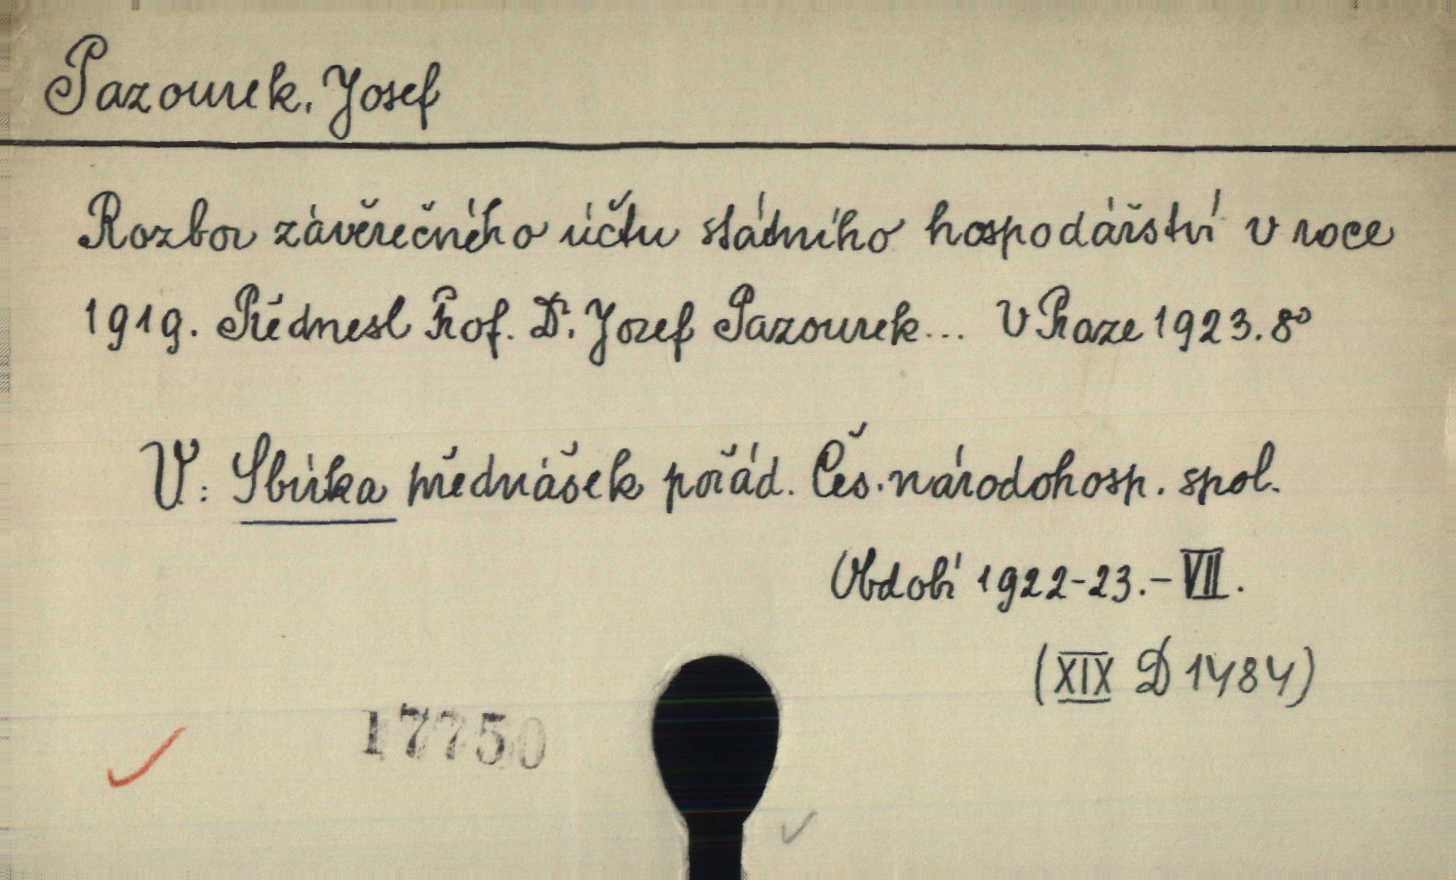 Pazourek, Josef
Rozbor závěrečného účtu státního hospodářství v roce
1919. Přednesl Prof. Dr. Josef Pazourek... V Praze 1923. 8°
V: Sbírka přednášek pořád. Čes. národohosp. spol.
Období 1922-23.-VII.
(XIX D 1484)
17750